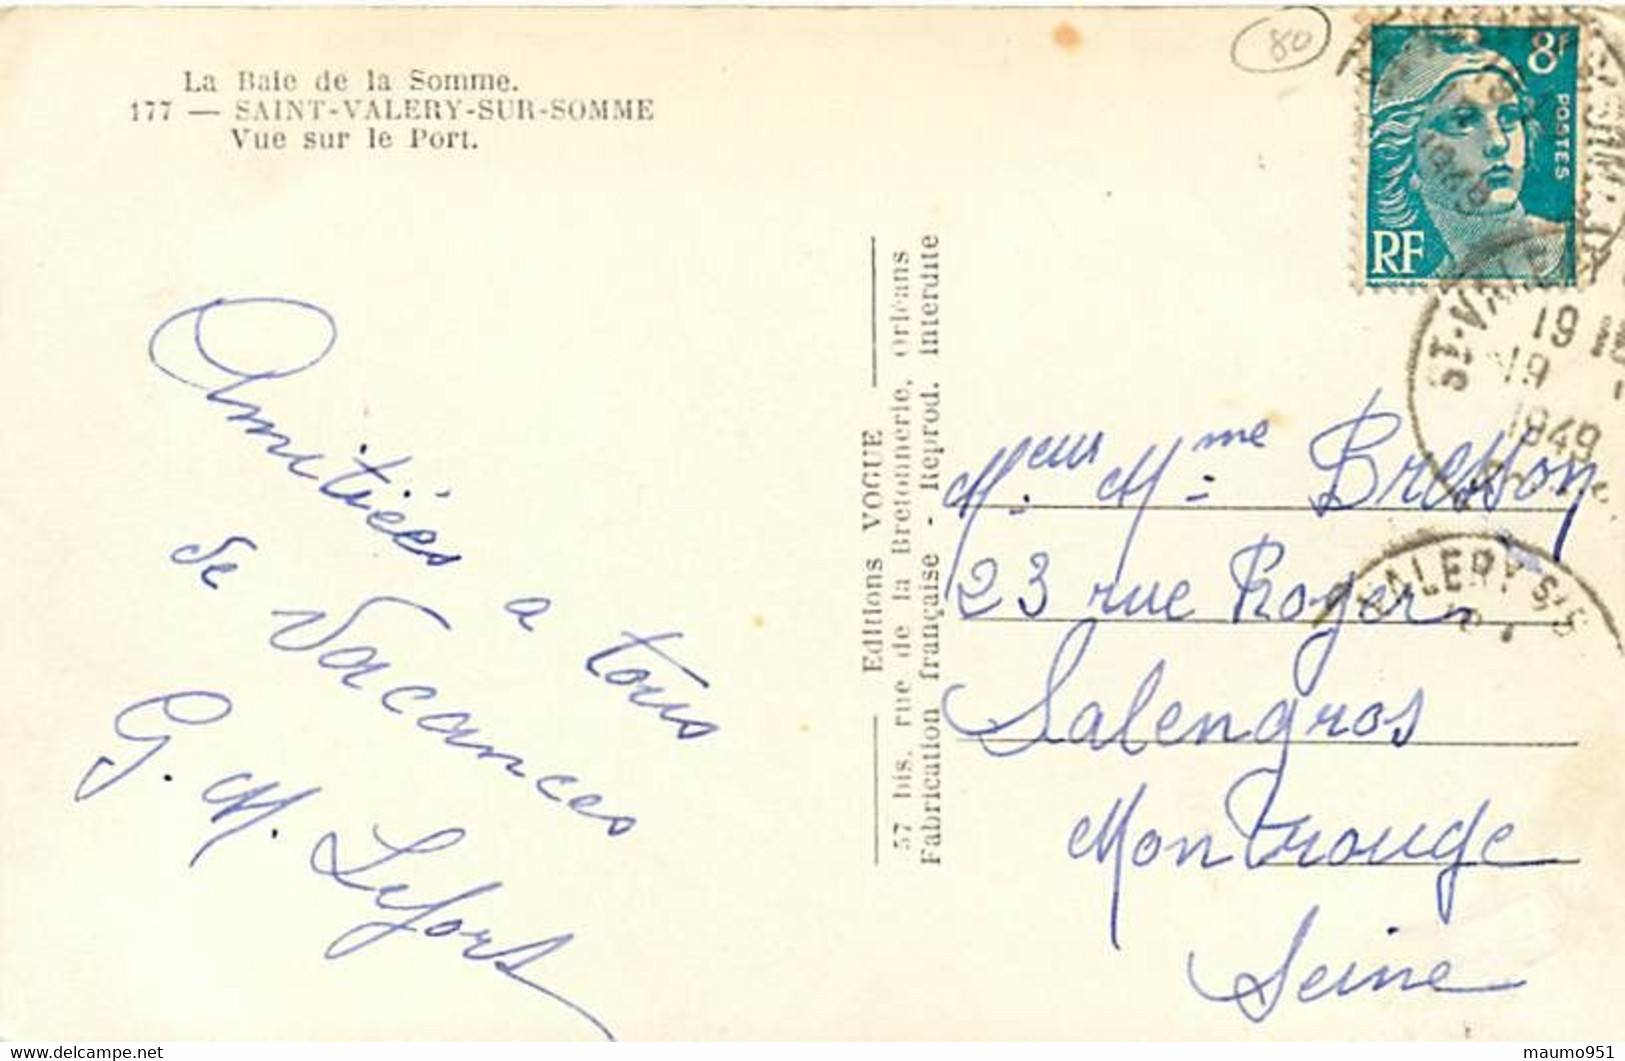 La Baie de la Somme.
177 — SAINT-VALERY-SUR-SOMME
Vue sur le Port.
80
8F
POSTES
RF
ST-VALERY
19
19
1949
VALERY S/S
Amitiés a tous
de Vacances
G. M. Lefort
Editions VOGUE
57 bis, rue de la Bretonnerie, Orléans
Fabrication française - Reprod. interdite
Meur Mme Bresson
23 rue Roger
Salengros
Montrouge
Seine
maumo951